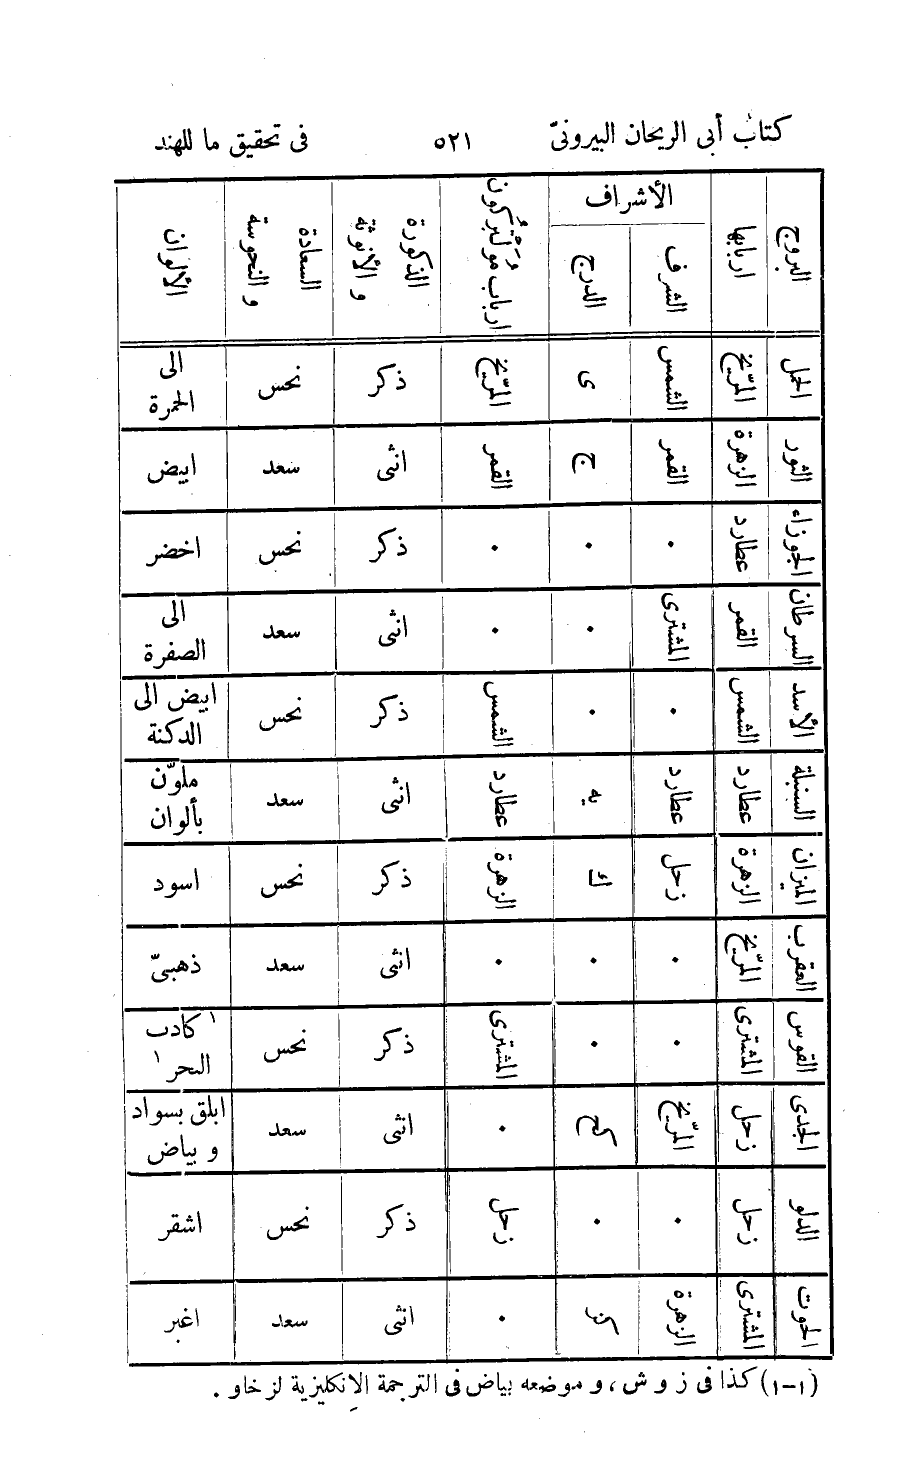 كتاب أبى الريحان البيرونىّ ٥٢١ فى تحقيق ما للهند
البروج | اربابها | الأشراف: الشرف | الدرج | ارباب مُولَتِرِكُون | الذكورة و الأنوثة | السعادة و النحوسة | الألوان
الحمل | المرّيخ | الشمس | ى | المرّيخ | ذكر | نحس | الى الحمرة
الثور | الزهرة | القمر | ج | القمر | انثى | سعد | ابيض
الجوزاء | عطارد | ٠ | ٠ | ٠ | ذكر | نحس | اخضر
السرطان | القمر | المشترى | ٠ | ٠ | انثى | سعد | الى الصفرة
الأسد | الشمس | ٠ | ٠ | الشمس | ذكر | نحس | ابيض الى الدكنة
السنبلة | عطارد | عطارد | يه | عطارد | انثى | سعد | ملوّن بألوان
الميزان | الزهرة | زحل | ك | الزهرة | ذكر | نحس | اسود
العقرب | المرّيخ | ٠ | ٠ | ٠ | انثى | سعد | ذهبىّ
القوس | المشترى | ٠ | ٠ | المشترى | ذكر | نحس | ١كادب البحر١
الجدى | زحل | المرّيخ | كح | ٠ | انثى | سعد | ابلق بسواد و بياض
الدلو | زحل | ٠ | ٠ | زحل | ذكر | نحس | اشقر
الحوت | المشترى | الزهرة | كز | ٠ | انثى | سعد | اغبر
(١-١) كذا فى ز و ش، و موضعه بياض فى الترجمة الإنكليزية لزخاو.